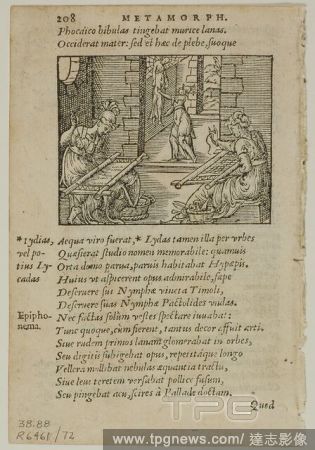 208 METAMORPH.
Phocaico bibulas tingebat murice lanas.
Occiderat mater: sed et hæc de plebe, suoque
*Lydias, Aequa viro fuerat, * Lydas tamen illa per vrbes
vel po- Quæsierat studio nomen memorabile: quamuis
tius Ly- Orta domo parua, paruis habitabat Hypæpis.
cadas Huius vt aspicerent opus admirabile, sæpe
Deseruere sui Nymphæ vineta Timoli,
Deseruere suas Nymphæ Pactolides vndas.
Epipho- Nec factas solùm vestes spectare iuuabat:
nema. Tunc quoque, cùm fierent, tantus decor affuit arti.
Siue rudem primos lanam glomerabat in orbes,
Seu digitis subigebat opus, repetitáque longo
Vellera mollibat nebulas æquantia tractu,
Siue leui teretem versabat pollice fusum,
Seu pingebat acu, scires à Pallade doctam.
Quod
38.88
R6461/72
TPG
www.tpgnews.com / 達志影像